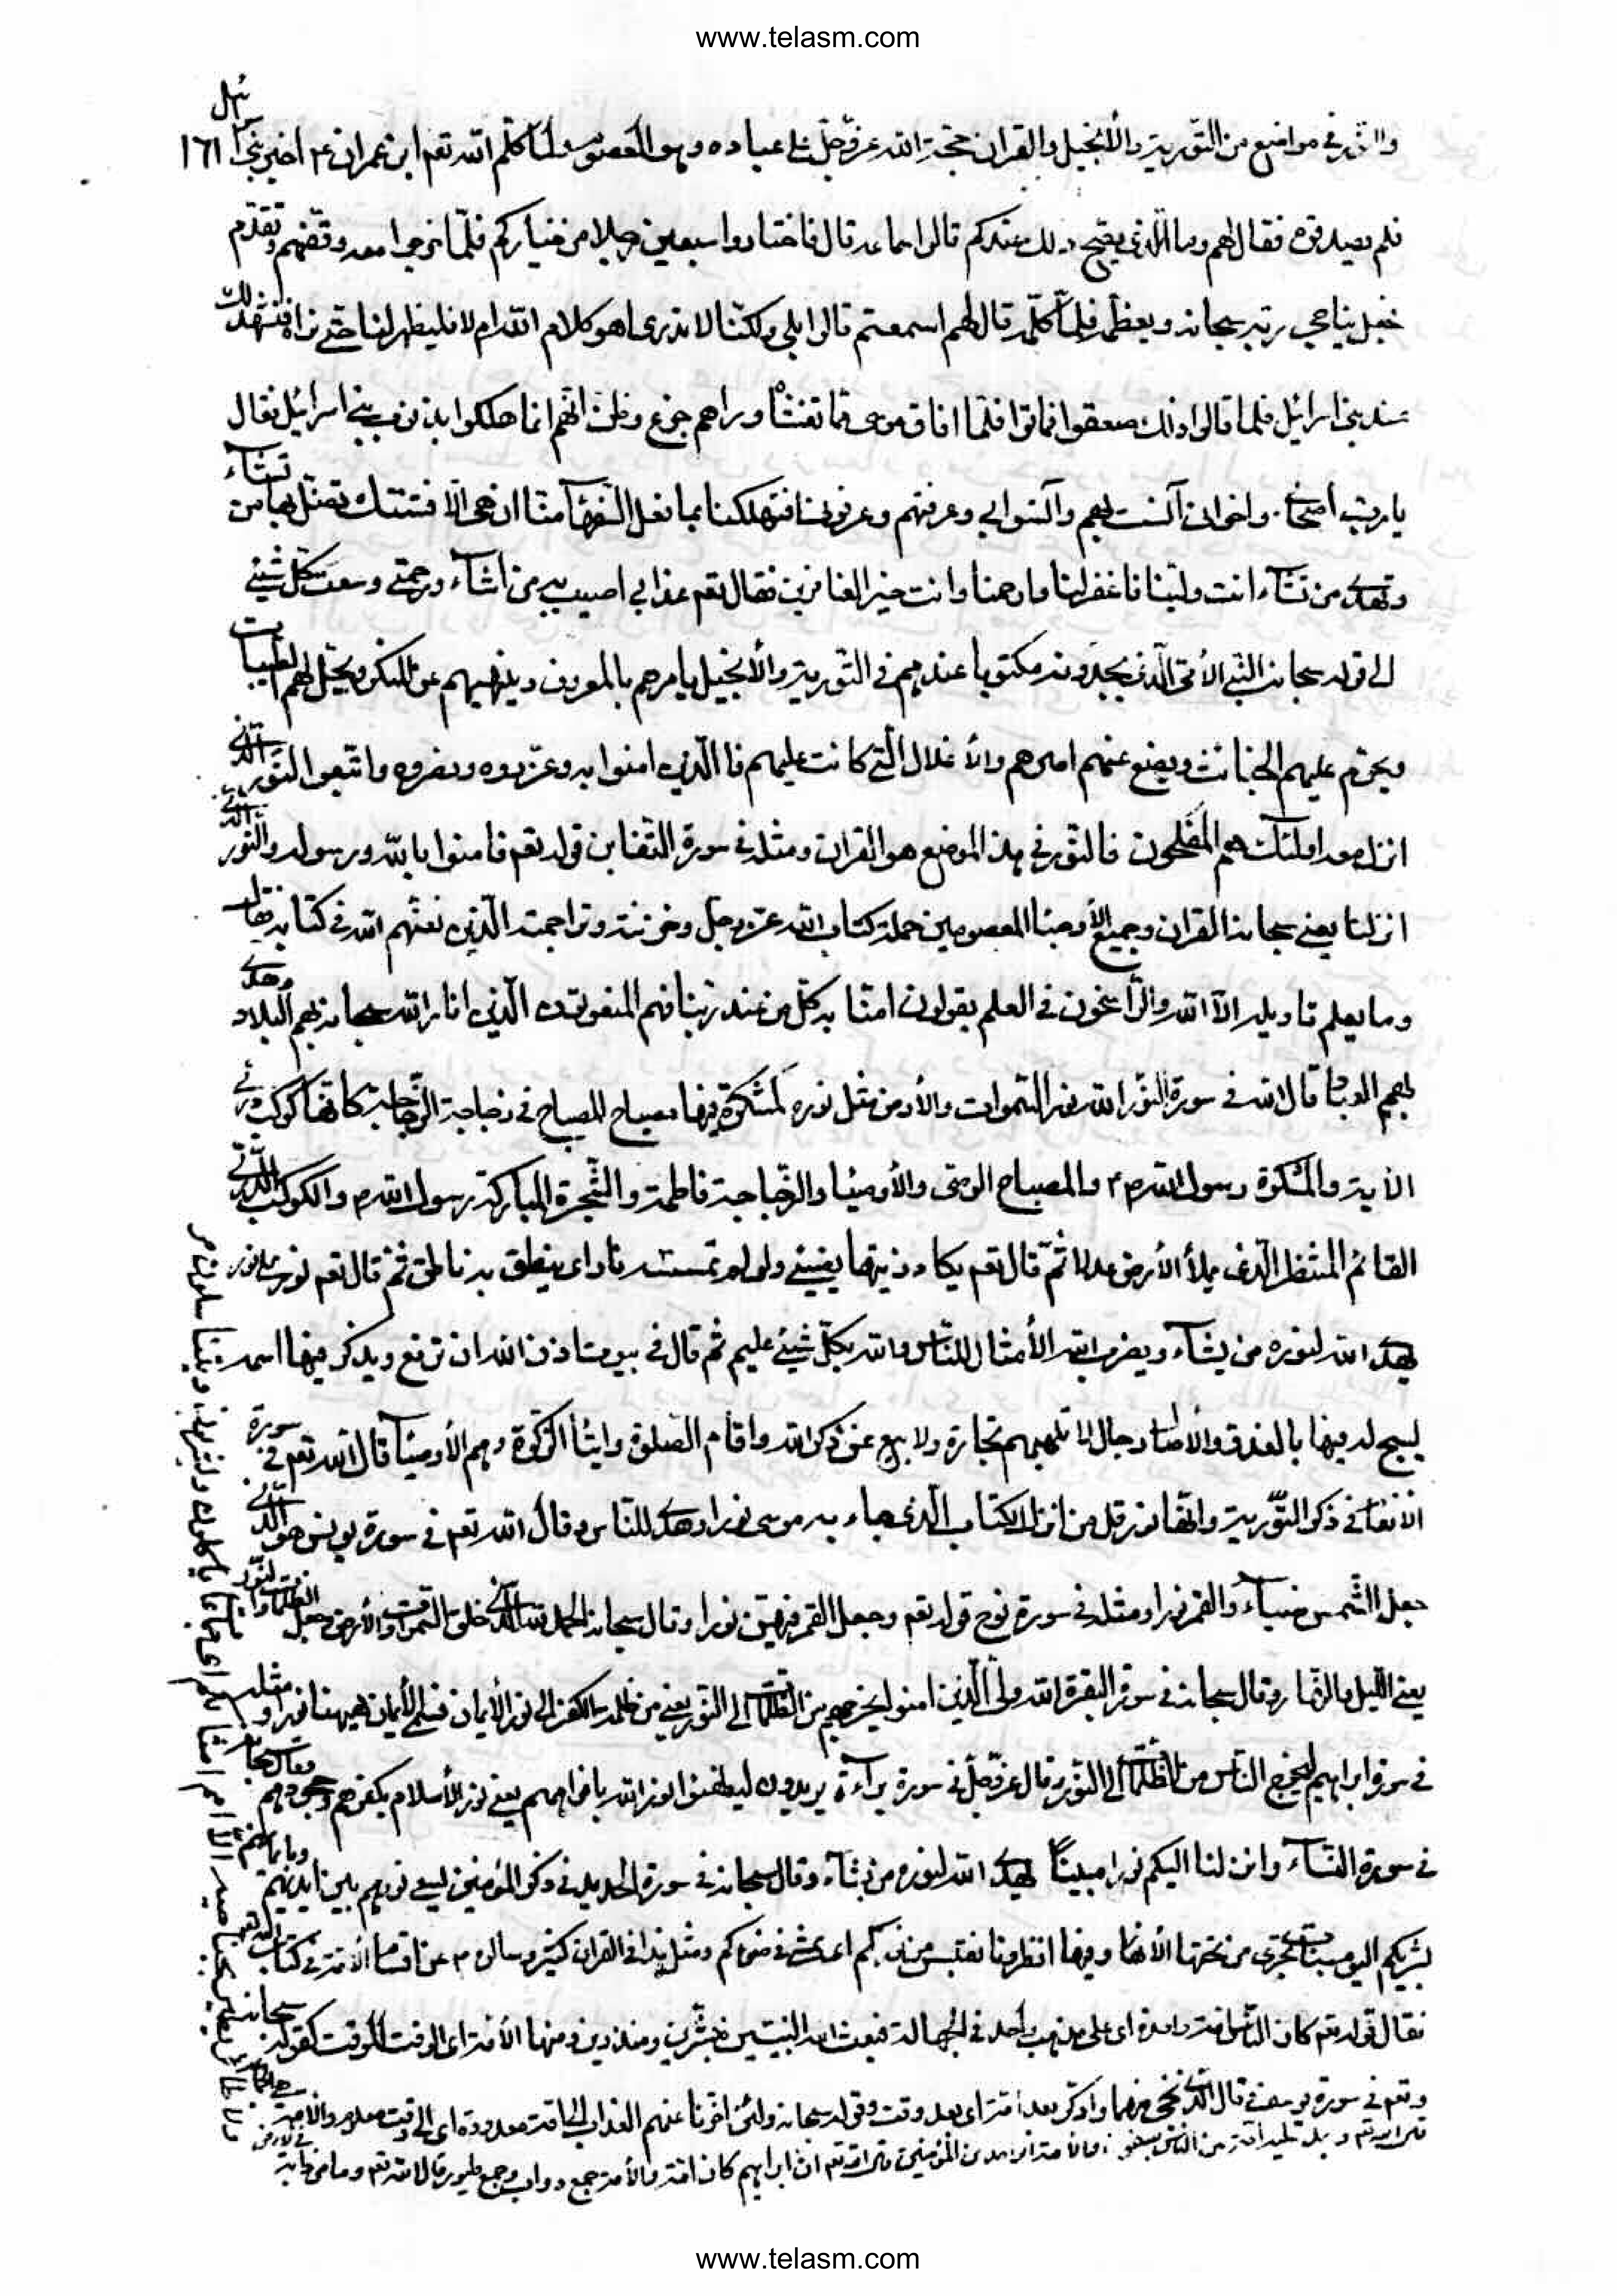 www.telasm.com
والنور في مواضع من التورية والأنجيل والقران حجة الله عز وجل على عباده وهو المعصوم ولما كلم الله تعم ابن عمران ع اخبر بني اسرائيل
١٦١
فلم يصدقوه فقال لهم وما الذي يصح ذلك عندكم قالوا سماعه قال فاختاروا سبعين رجلا من خياركم فلما خرجوا معه وقفهم وتقدم
فجعل يناجي ربه سبحانه ويعظمه فلما كلمه قال لهم اسمعتم قالوا بلى ولكنا لا ندري اهو كلام الله ام لا فليظهر لنا حتى نراه فنشهد لك
عند بني اسرائيل فلما قالوا ذلك صعقوا فماتوا فلما افاق موسى مما تغشاه وراهم جزع وظن انهم انما هلكوا بذنوب بني اسرائيل فقال
يا رب أصحابي واخواني آنست بهم وآنسوا بي وعرفتهم وعرفوني افتهلكنا بما فعل السفهآء منّا ان هي الّا فتنتك تضل بها من تشآء
وتهدي من تشآء انت ولينا فاغفر لنا وارحمنا وانت خير الغافرين فقال تعم عذابي اصيب به من اشآء ورحمتي وسعت كل شيئ
الى قوله سبحانه النبي الأمي الذي يجدونه مكتوبا عندهم في التورية والأنجيل يامرهم بالمعروف وينهيهم عن المنكر ويحل لهم الطيبات
ويحرم عليهم الخبائث ويضع عنهم اصرهم والأغلال التي كانت عليهم فاالذين امنوا به وعزروه ونصروه واتبعوا النور الذي
انزل معه اولئك هم المفلحون فالنور في هذا الموضع هو القران ومثله في سورة التغابن قوله تعم فامنوا بالله ورسوله والنور الذي
انزلنا يعني سبحانه القران وجميع الأوصيا المعصومين حملة كتاب الله عز وجل وخزنته وتراجمته الذين نعتهم الله في كتابه فقال
وما يعلم تاويله الآ الله والراسخون في العلم يقولون امنّا به كل من عند ربنا فهم المنعوتون الذين انار الله سبحانه بهم البلاد وهدى
بهم العباد قال الله في سورة النور الله نور السموات والأرض مثل نوره كمشكوة فيها مصباح المصباح في زجاجة الزجاجة كانها كوكب دري
الاية والمشكوة رسول الله ص والمصباح الوصي والأوصيا والزجاجة فاطمة والشجرة المباركة رسول الله ص والكوكب الدري
القائم المنتظر الذي يملأ الأرض عدلا ثم قال تعم يكاد زيتها يضيئ ولو لم تمسسه نار اي ينطق به ناطق ثم قال تعم نور على نور
يهدي الله لنوره من يشآء ويضرب الله الأمثال للناس والله بكل شيئ عليم ثم قال في بيوت اذن الله ان ترفع ويذكر فيها اسمه
يسبح له فيها بالغدو والأصال رجال لا تلهيهم تجارة ولا بيع عن ذكر الله واقام الصلوة وايتاء الزكوة وهم الأوصيآ قال الله تعم في سورة
الانعام في ذكر التورية وانها نور قل من انزل الكتاب الذي جاء به موسى نورا وهدى للناس وقال الله تعم في سورة يونس هو الذي
جعل الشمس ضيآء والقمر نورا ومثله في سورة نوح قوله تعم وجعل القمر فيهن نورا وقال سبحانه الحمد لله الذي خلق السموات والأرض وجعل الظلمات والنور
يعني الليل والنهار وقال سبحانه في سورة البقرة الله ولي الذين امنوا يخرجهم من الظلمات الى النور يعني من ظلمة الكفر الى نور الأيمان فسمى الأيمان هيهنا نورا ومثله
في سورة ابراهيم لتخرج الناس من الظلمات الى النور وقال عز وجل في سورة برآءة يريدون ليطفئوا نور الله بافواههم يعني نور الأسلام بكفرهم وجحودهم وقال سبحانه
في سورة النسآء وانزلنا اليكم نورا مبينًا يهدي الله لنوره من يشآء وقال سبحانه في سورة الحديد في ذكر المؤمنين يسعى نورهم بين ايديهم وبايمانهم
بشريكم اليوم جنات تجري من تحتها الأنهار وفيها انظرونا نقتبس من نوركم اي نمش في ضوءكم ومثل هذا في القران كثير وسالوه ع عن اقسام الأمة في كتاب الله تعم
فقال قوله تعم كان الناس امة واحدة اي على مذهب واحد في الجهالة فبعث الله النبيين مبشرين ومنذرين ومنها الأمة اي الوقت الموقت كقوله سبحانه
وتعم في سورة يوسف قال الذي نجى منهما وادكر بعد أمة اي بعد وقت وقوله سبحانه ولئن اخرنا عنهم العذاب الى امة معدودة اي الى وقت معلوم والامة
قوله تعم ان ابراهيم كان امة والأمة جمع دواب وجمع طيور قال الله تعم وما من دابة في الارض
www.telasm.com